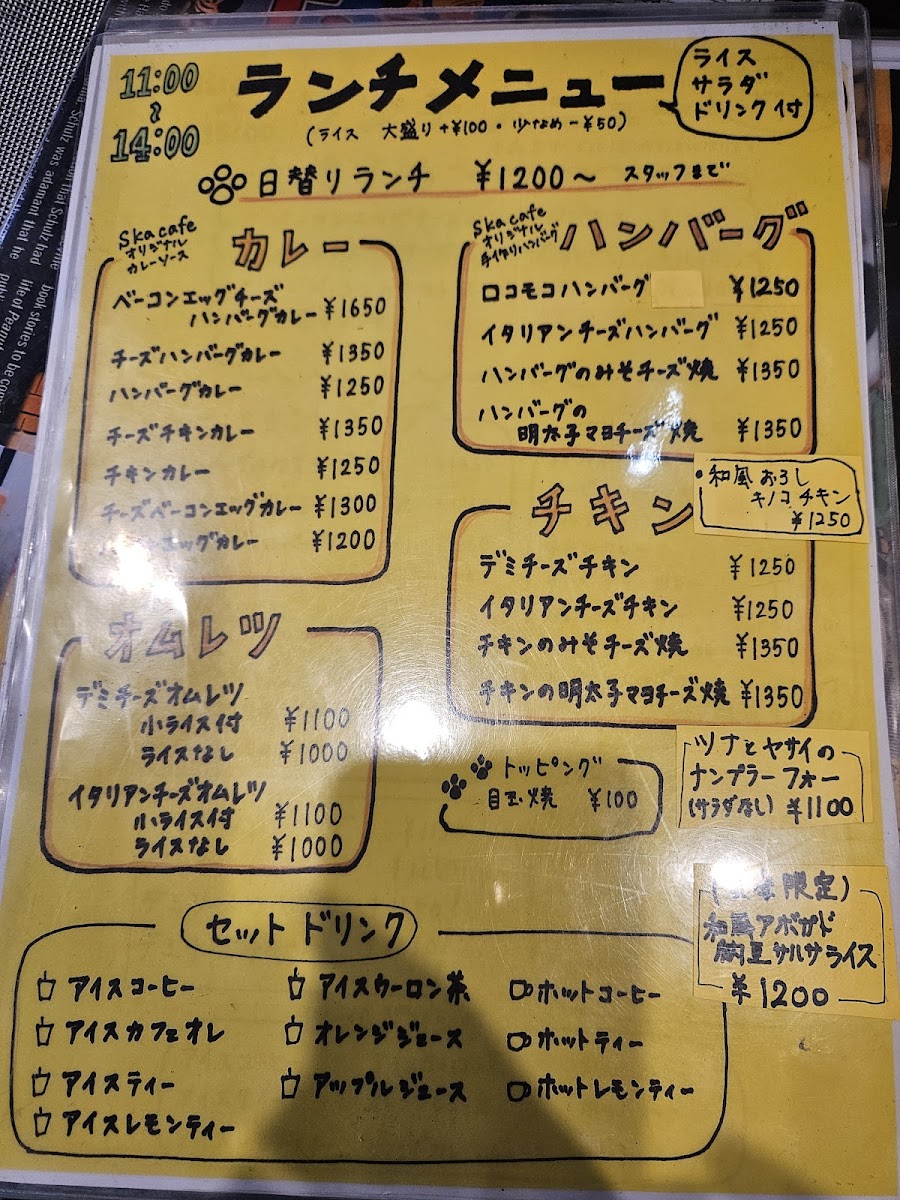 11:00
~
14:00
ランチメニュー
(ライス 大盛り+¥100・少なめ-¥50)
ライス
サラダ
ドリンク付
日替りランチ ¥1200~ スタッフまで
Ska cafe
オリジナル
カレーソース
カレー
ベーコンエッグチーズ
ハンバーグカレー ¥1650
チーズハンバーグカレー ¥1350
ハンバーグカレー ¥1250
チーズチキンカレー ¥1350
チキンカレー ¥1250
チーズベーコンエッグカレー ¥1300
エッグカレー ¥1200
Ska cafe
オリジナル
手作りハンバーグ
ハンバーグ
ロコモコハンバーグ ¥1250
イタリアンチーズハンバーグ ¥1250
ハンバーグのみそチーズ焼 ¥1350
ハンバーグの
明太子マヨチーズ焼 ¥1350
・和風おろし
キノコチキン
¥1250
チキン
デミチーズチキン ¥1250
イタリアンチーズチキン ¥1250
チキンのみそチーズ焼 ¥1350
チキンの明太子マヨチーズ焼 ¥1350
オムレツ
デミチーズオムレツ
小ライス付 ¥1100
ライスなし ¥1000
イタリアンチーズオムレツ
小ライス付 ¥1100
ライスなし ¥1000
トッピング
目玉焼 ¥100
ツナとヤサイの
ナンプラーフォー
(サラダなし) ¥1100
限定)
和風アボガド
納豆サルサライス
¥1200
セットドリンク
アイスコーヒー
アイスカフェオレ
アイスティー
アイスレモンティー
アイスウーロン茶
オレンジジュース
アップルジュース
ホットコーヒー
ホットティー
ホットレモンティー